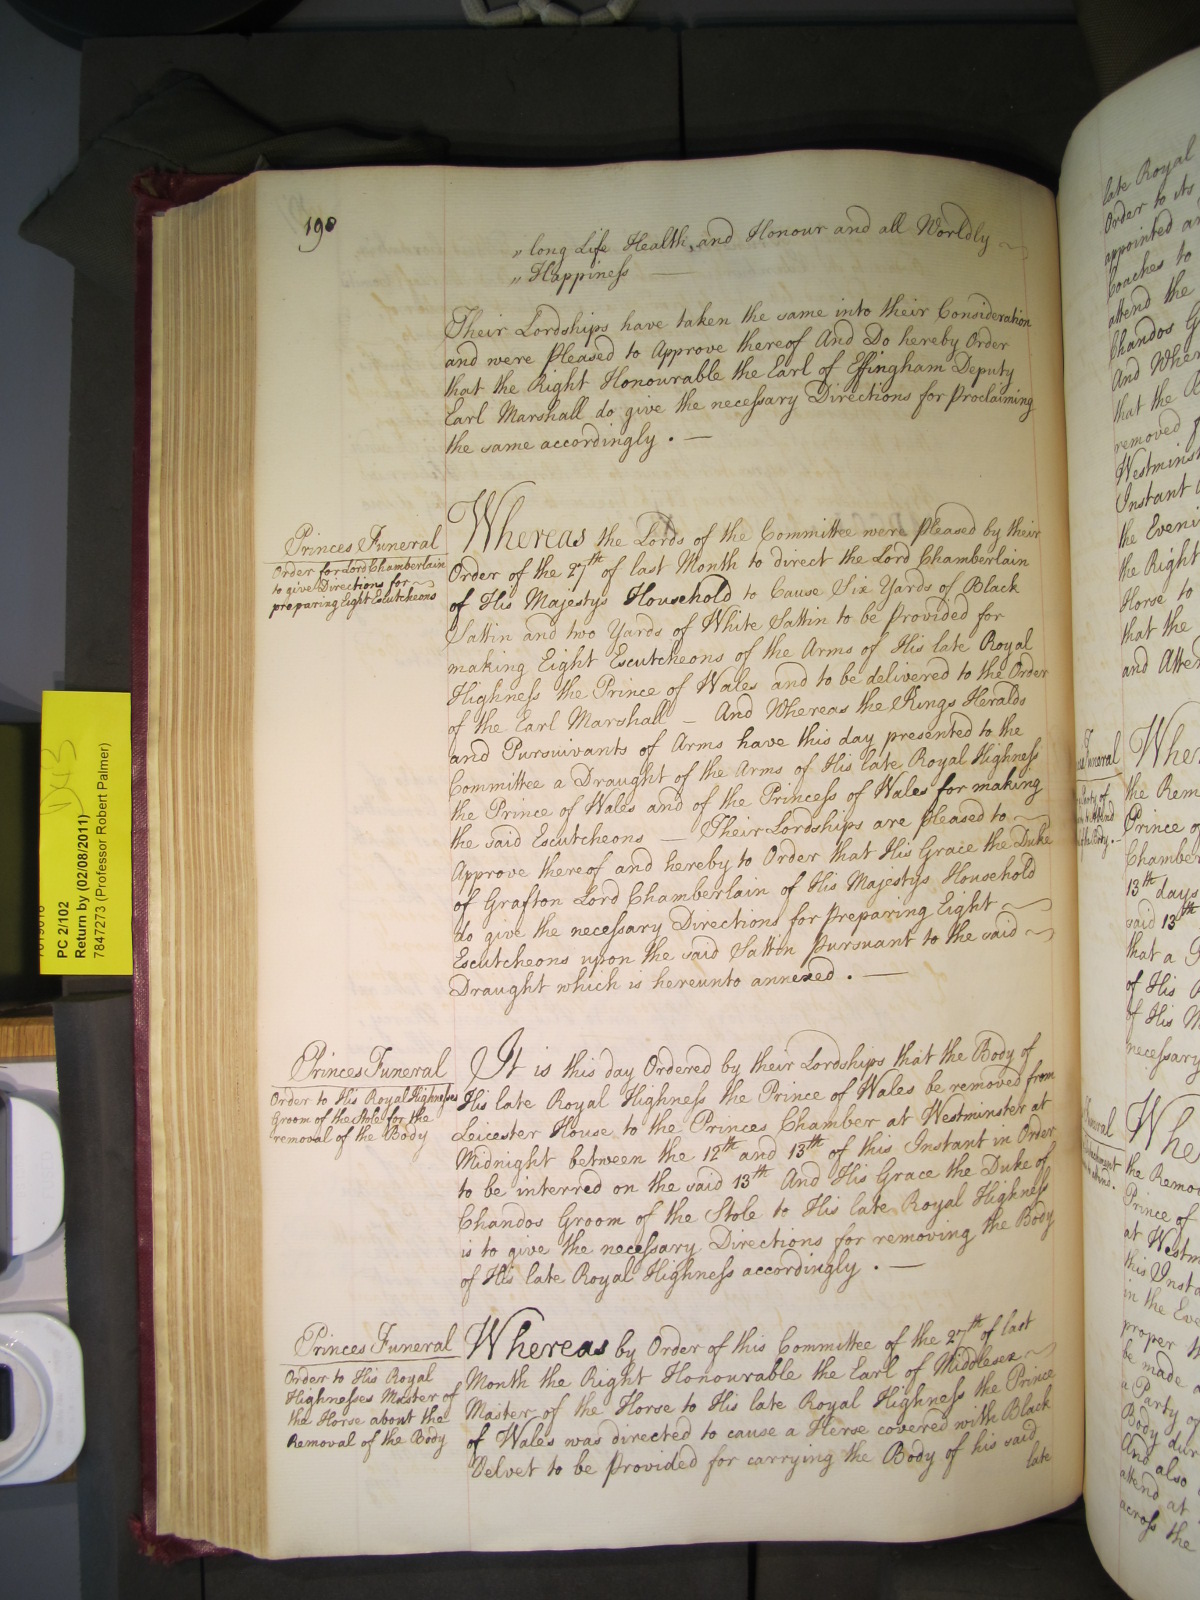 190
„ long Life Health, and Honour and all Worldly
„ Happiness
Their Lordships have taken the same into their Consideration
and were Pleased to Approve thereof And Do hereby Order
that the Right Honourable the Earl of Effingham Deputy
Earl Marshall do give the necessary Directions for Proclaiming
the same accordingly . —
Princes Funeral
Order for Lord Chamberlain
to give Directions for
preparing Eight Escutcheons
Whereas the Lords of the Committee were Pleased by their
Order of the 27th of last Month to direct the Lord Chamberlain
of His Majestys Household to Cause Six Yards of Black
Sattin and two Yards of White Sattin to be Provided for
making Eight Escutcheons of the Arms of His late Royal
Highness the Prince of Wales and to be delivered to the Order
of the Earl Marshall — And Whereas the Kings Heralds
and Pursuivants of Arms have this day presented to the
Committee a Draught of the Arms of His late Royal Highness
the Prince of Wales and of the Princess of Wales for making
the said Escutcheons — Their Lordships are pleased to
Approve thereof and hereby to Order that His Grace the Duke
of Grafton Lord Chamberlain of His Majestys Household
do give the necessary Directions for Preparing Eight
Escutcheons upon the said Sattin Pursuant to the said
Draught which is hereunto annexed . —
Princes Funeral
Order to His Royal Highnesses
Groom of the Stole for the
removal of the Body
It is this day Ordered by their Lordships that the Body of
His late Royal Highness the Prince of Wales be removed from
Leicester House to the Princes Chamber at Westminster at
Midnight between the 12th and 13th of this Instant in Order
to be interred on the said 13th And His Grace the Duke of
Chandos Groom of the Stole to His late Royal Highness
is to give the necessary Directions for removing the Body
of His late Royal Highness accordingly . —
Princes Funeral
Order to His Royal
Highnesses Master of
the Horse about the
Removal of the Body
Whereas by Order of this Committee of the 27th of last
Month the Right Honourable the Earl of Middlesex
Master of the Horse to His late Royal Highness the Prince
of Wales was directed to cause a Herse covered with Black
Velvet to be Provided for carrying the Body of his said
late
PC 2/102
Return by (02/08/2011)
7847273 (Professor Robert Palmer)
late Royal
Order to its
appointed
Coaches to
attend the
Chandos
And Wher
that the
removed
Westminst
Instant
the Eveni
the Right
Horse to
that the
and Atten
Funeral
Wher
the Rem
Prince
Chamber
13th days
said 13th
that a
of His
of His
necessary
Funeral
Whe
the Remov
Prince of
at Westm
this Insta
in the Eve
proper
be made
a Party of
Body dur
And also
attend at
across the